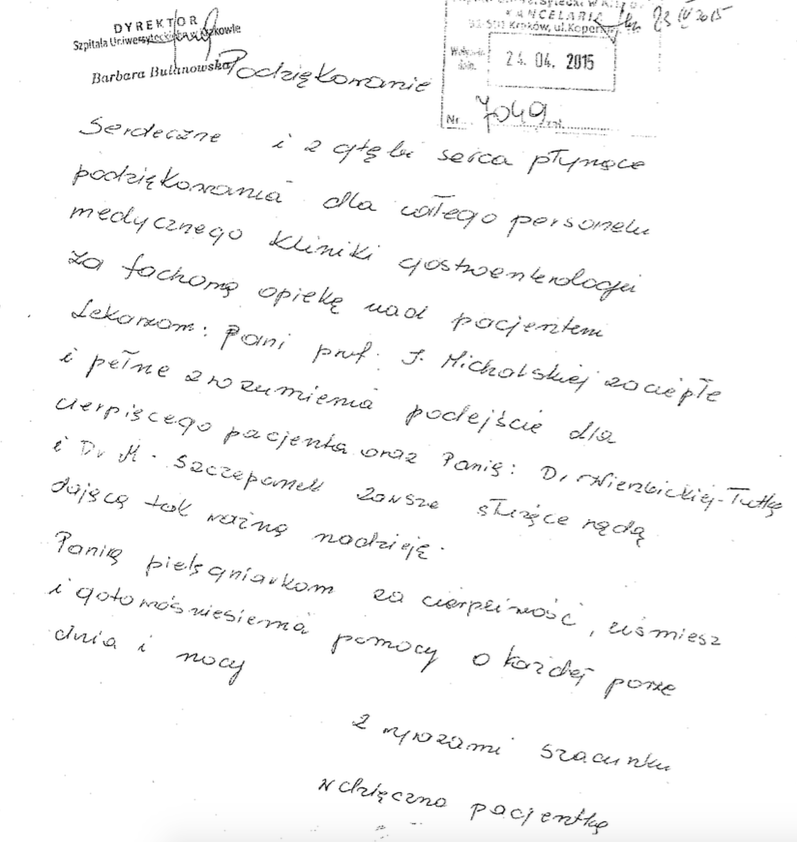 DYREKTOR
Szpitala Uniwersyteckiego w Krakowie
Barbara Bulanowska
KANCELARIA
31-501 Kraków, ul. Koper
23 IV 2015
24. 04. 2015
Nr 7049 zał.
Podziękowanie
Serdeczne i z głębi serca płynące
podziękowania dla całego personelu
medycznego kliniki gastroenterologii
za fachową opiekę nad pacjentem
Lekarzom: Pani prof. J. Michalskiej za ciepłe
i pełne zrozumienia podejście dla
cierpiącego pacjenta oraz Panią: Dr Wierzbickiej-Tutką
i Dr M. Szczepanek zawsze służące radą
dającą tak ważną nadzieję.
Panią pielęgniarkom za cierpliwość, uśmiesz
i gotowość niesienia pomocy o każdej porze
dnia i nocy
Z wyrazami szacunku
wdzięczna pacjentka